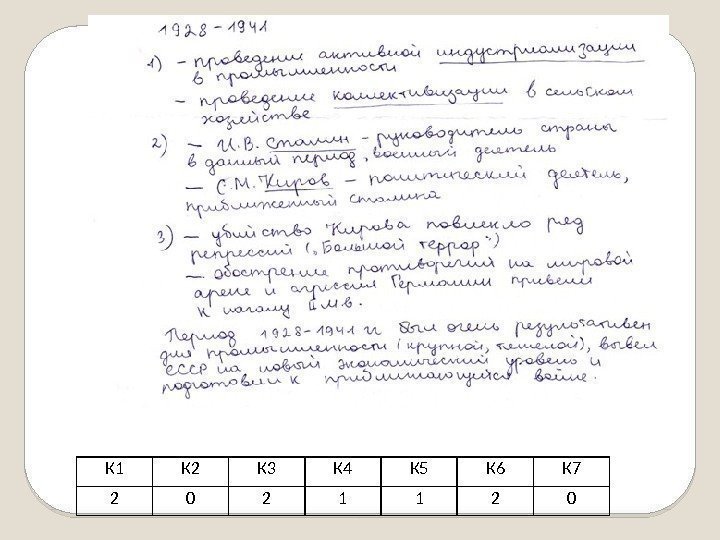 1928-1941
1) - проведение активной индустриализации
в промышленности
- проведение коллективизации в сельском
хозяйстве
2) - И.В. Сталин - руководитель страны
в данный период, военный деятель
- С.М. Киров - политический деятель,
приближенный Сталина
3) - убийство Кирова повлекло ряд
репрессий („Большой террор")
- обострение противоречий на мировой
арене и агрессия Германии привели
к началу II м.в.
Период 1928-1941 гг был очень результативен
для промышленности (крупной, тяжелой), вывел
СССР на новый экономический уровень и
подготовил к приближающейся войне.
К1 К2 К3 К4 К5 К6 К7
2 0 2 1 1 2 0